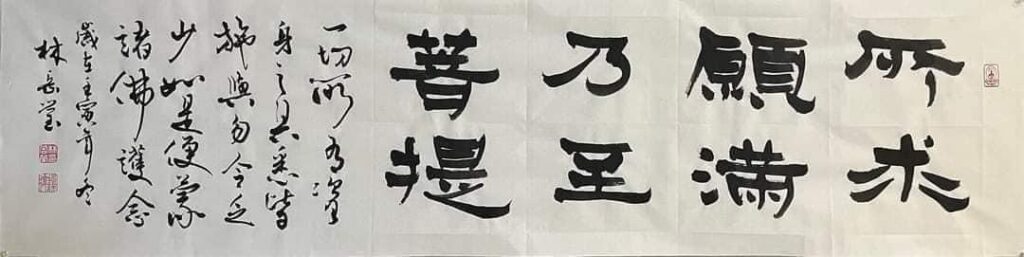 所求
願滿
乃至
菩提
一切所有資
身之具悉皆
施與勿令乏
少如是便蒙
諸佛護念
歲在壬寅年冬
林